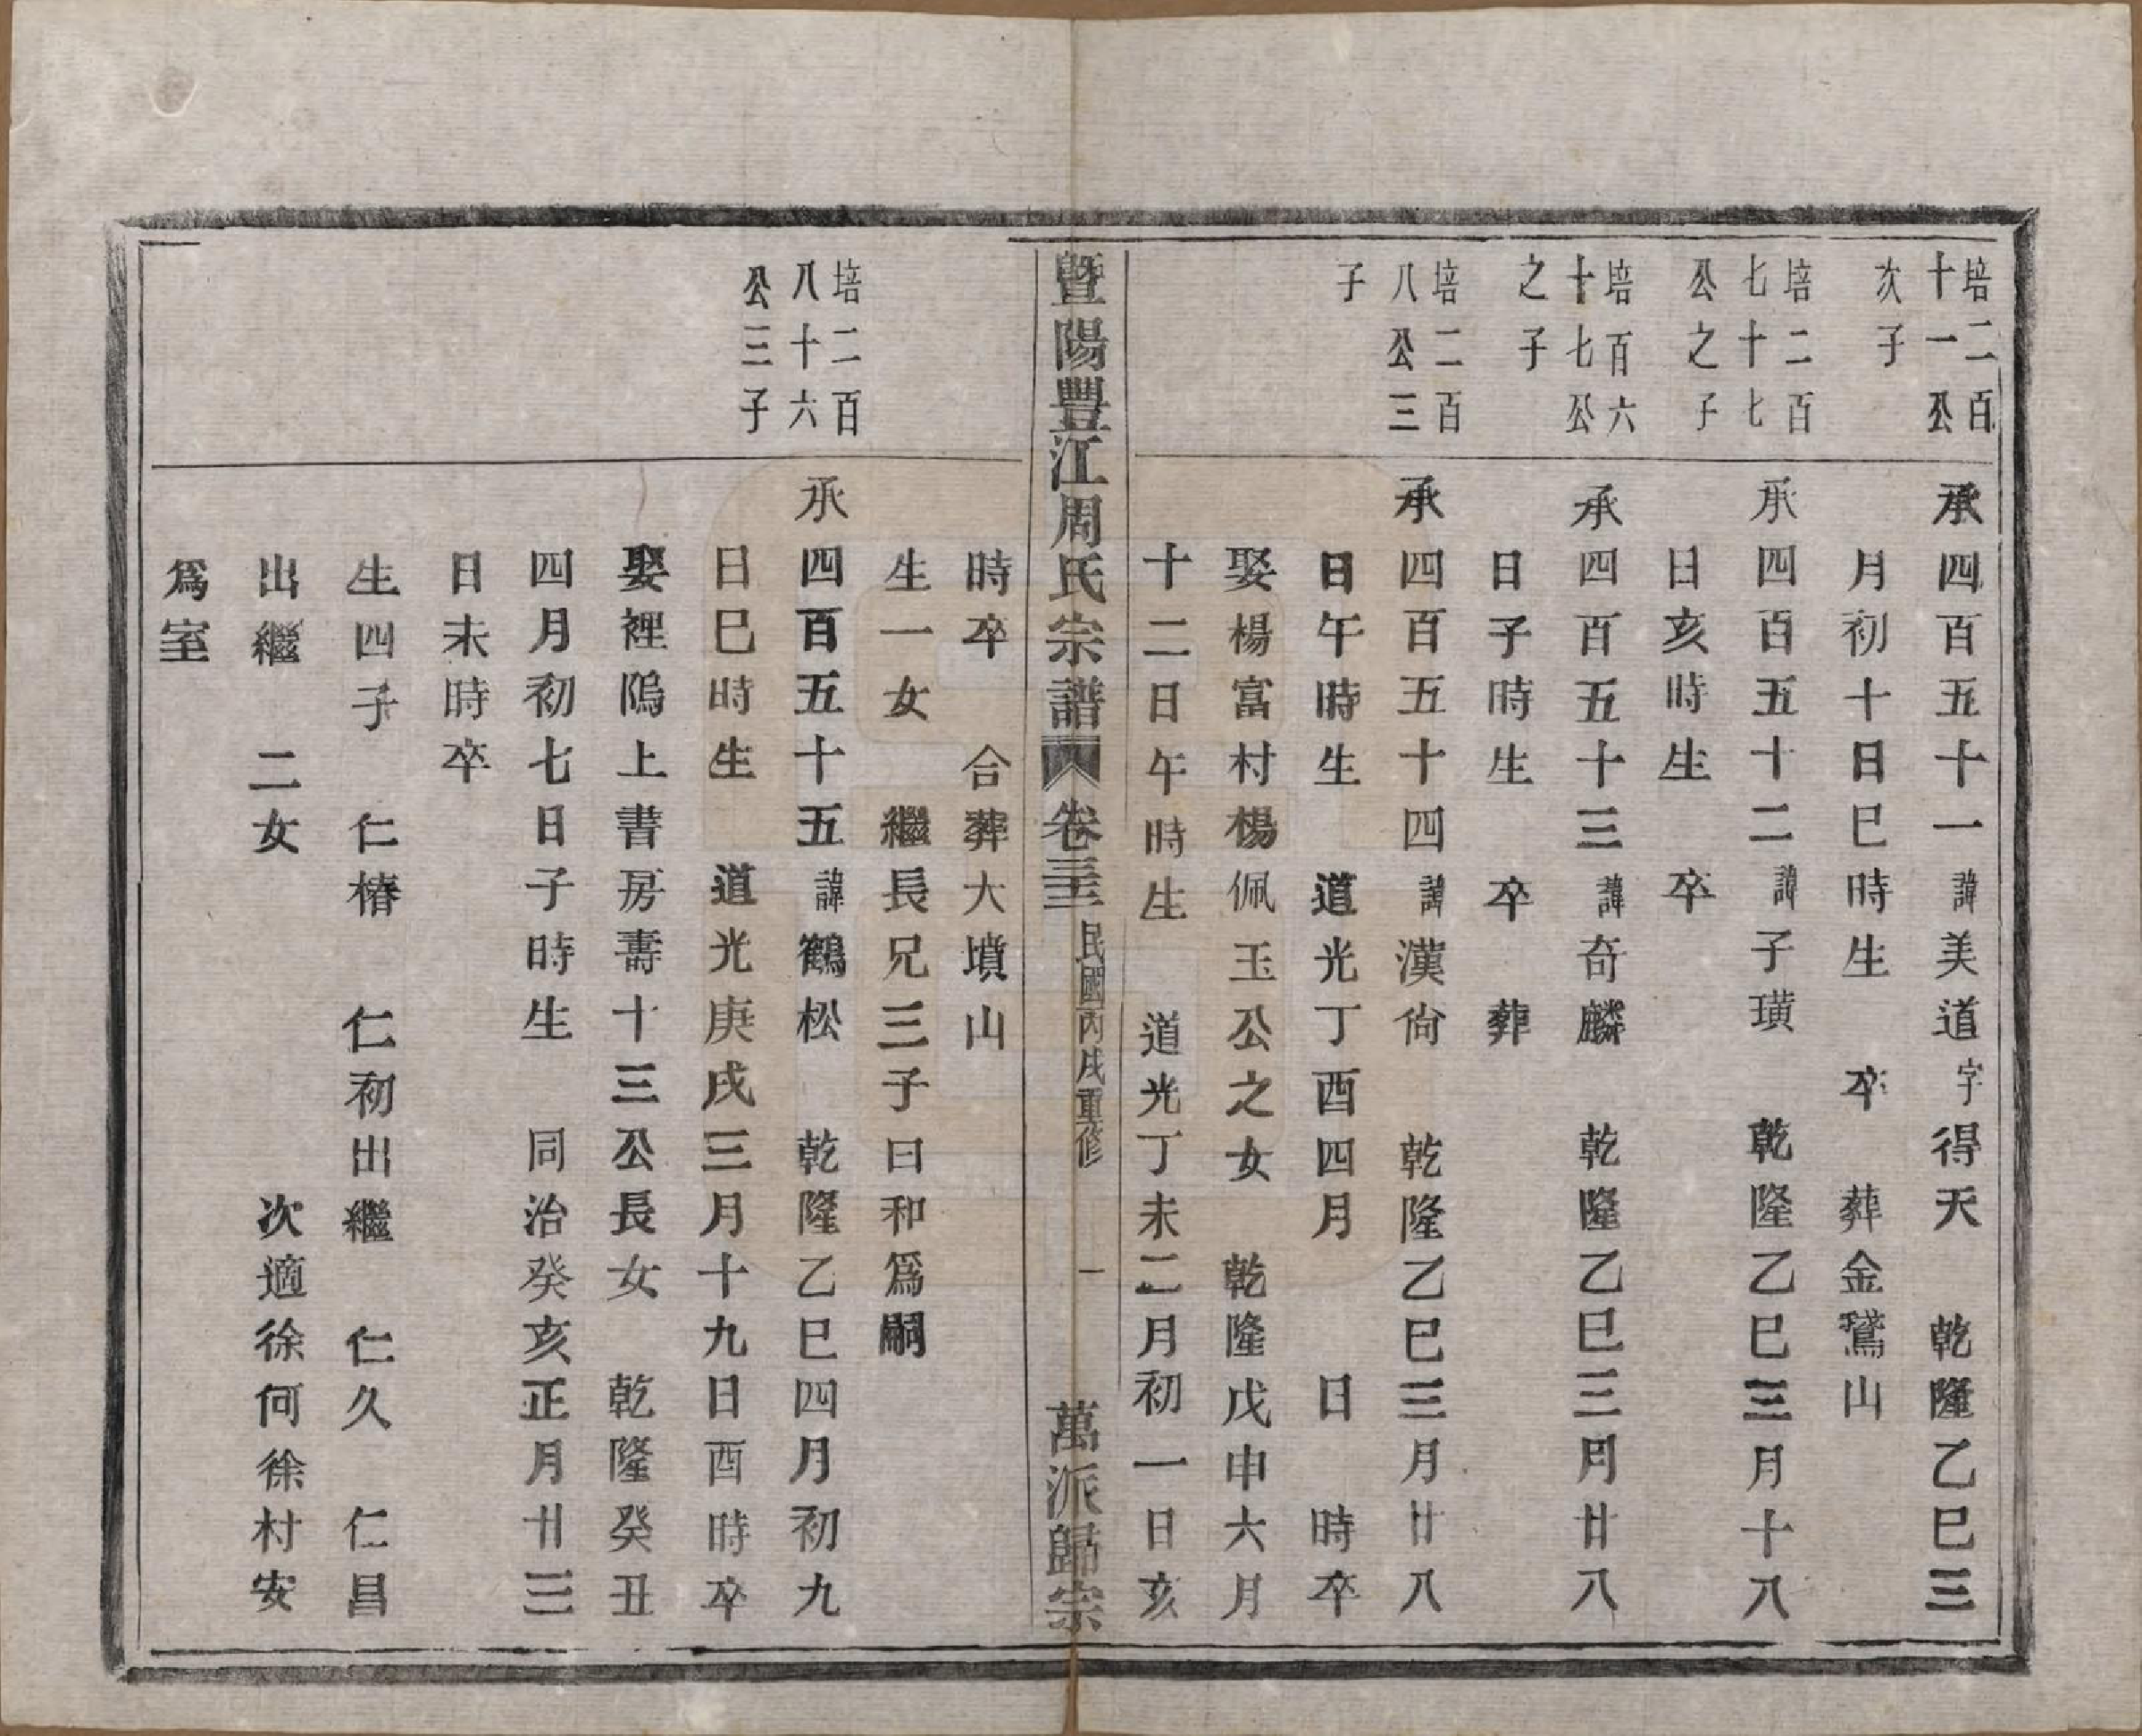 培二百
十一公
次子
承四百五十一諱美道字得天 乾隆乙巳三
月初十日巳時生 卒 葬金鵞山
培二百
七十七
公之子
承四百五十二諱子璜 乾隆乙巳三月十八
日亥時生 卒
培百六
十七公
之子
承四百五十三諱奇麟 乾隆乙巳三月廿八
日子時生 卒 葬
培二百
八公三
子
承四百五十四諱漢尙 乾隆乙巳三月廿八
日午時生 道光丁酉四月 日 時卒
娶楊富村楊佩玉公之女 乾隆戊申六月
十二日午時生 道光丁未二月初一日亥
暨陽豐江周氏宗譜 卷三十三 民國丙戌重修 一 萬派歸宗
時卒 合葬大墳山
生一女 繼長兄三子曰和爲嗣
培二百
八十六
公三子
承四百五十五諱鶴松 乾隆乙巳四月初九
日巳時生 道光庚戌三月十九日酉時卒
娶裡隖上書房壽十三公長女 乾隆癸丑
四月初七日子時生 同治癸亥正月廿三
日未時卒
生四子 仁椿 仁初出繼 仁久 仁昌
出繼 二女 次適徐何徐村安
爲室